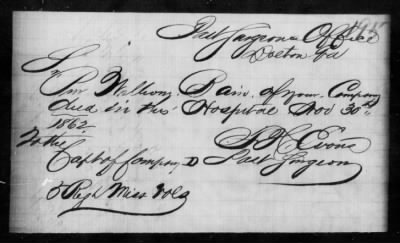 Post Surgeons Office
Dalton Ga
Sir
Pvt William Bain, of your Company
died in this Hospital Nov 30th
1862
To the
Capt of Company D
Regt Miss Vols
Evans
Post Surgeon